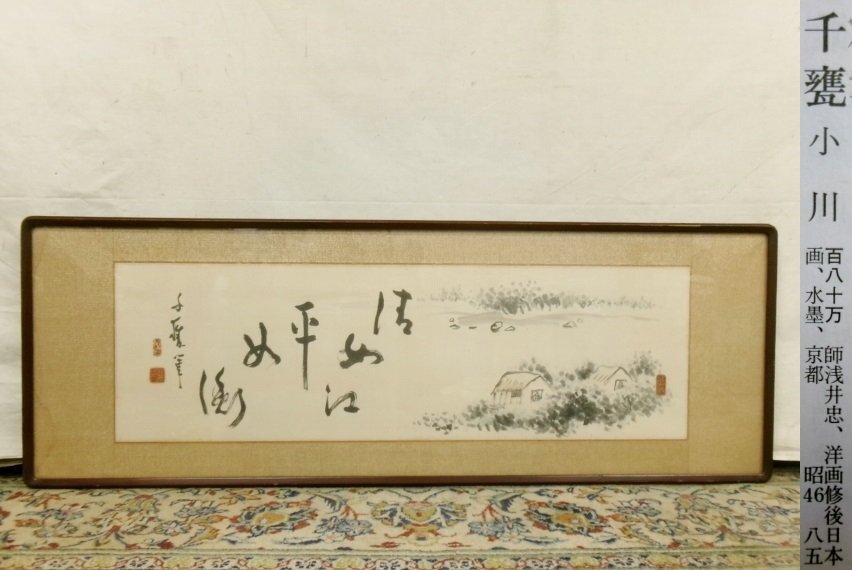 清如江
平如衡
千甕筆
千甕
小川
百八十万 師浅井忠、洋画修後日本
画、水墨、京都 昭46 八五